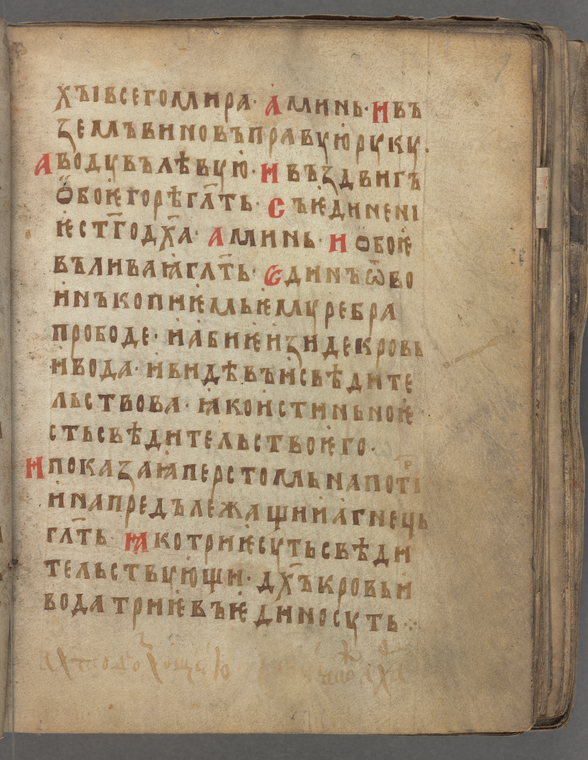 хъı всего мира · аминь · и въ
ꙁемъ вино въ правꙋю рꙋкꙋ ·
а водꙋ въ лѣвꙋю · и въꙁдвигъ
ѻбоѥ горѣ гл҃ть · съѥдинениı
ѥ ст҃го дх҃а · аминь · и ѻбоѥ
въливаꙗ гл҃ть · єдинъ ѿ во
инъ копиѥмь ѥмꙋ ребра
прободе · и абиѥ иꙁиде кровь
и вода · и видѣвъи свѣдите
льствова · ꙗко истиньноѥ
сть свѣдительство ѥго ·
и покаꙁаꙗ перстомь на потı
и на предълежащии агнець
гл҃ть · ꙗко триѥ сꙋть свѣди
тельствꙋющи · дх҃ъ кровь и
вода триѥ въ ѥдино сꙋть ·